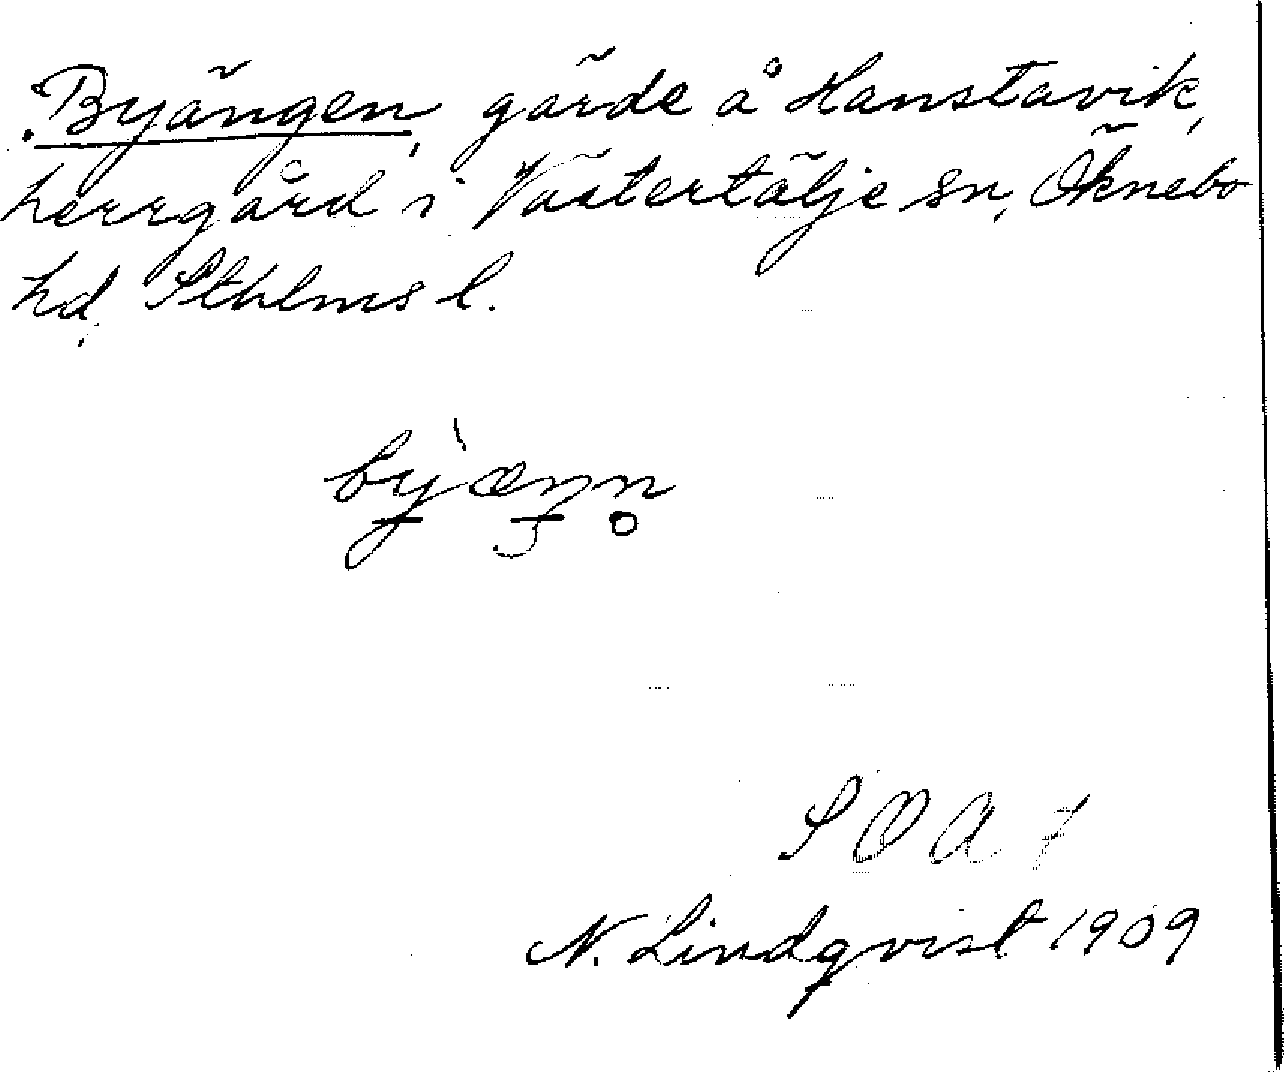 Byängen, gärde å Hanstavik,
herrgård i Västertälje sn, Öknebo
hd, Sthlms l.
býæŋn̥
SOA 7
N. Lindqvist 1909